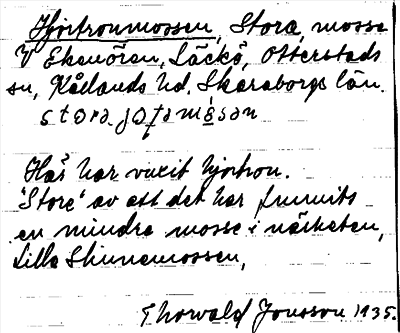 Hjortronmossen, Stora, mosse
V Ekenören, Läckö, Otterstads
sn, Kållands hd. Skaraborgs län.
stora
Här har växit hjortron.
"Stora" av att det har funnits
en mindre mosse i närheten,
Lilla
Thorvald Jonsson 1935.